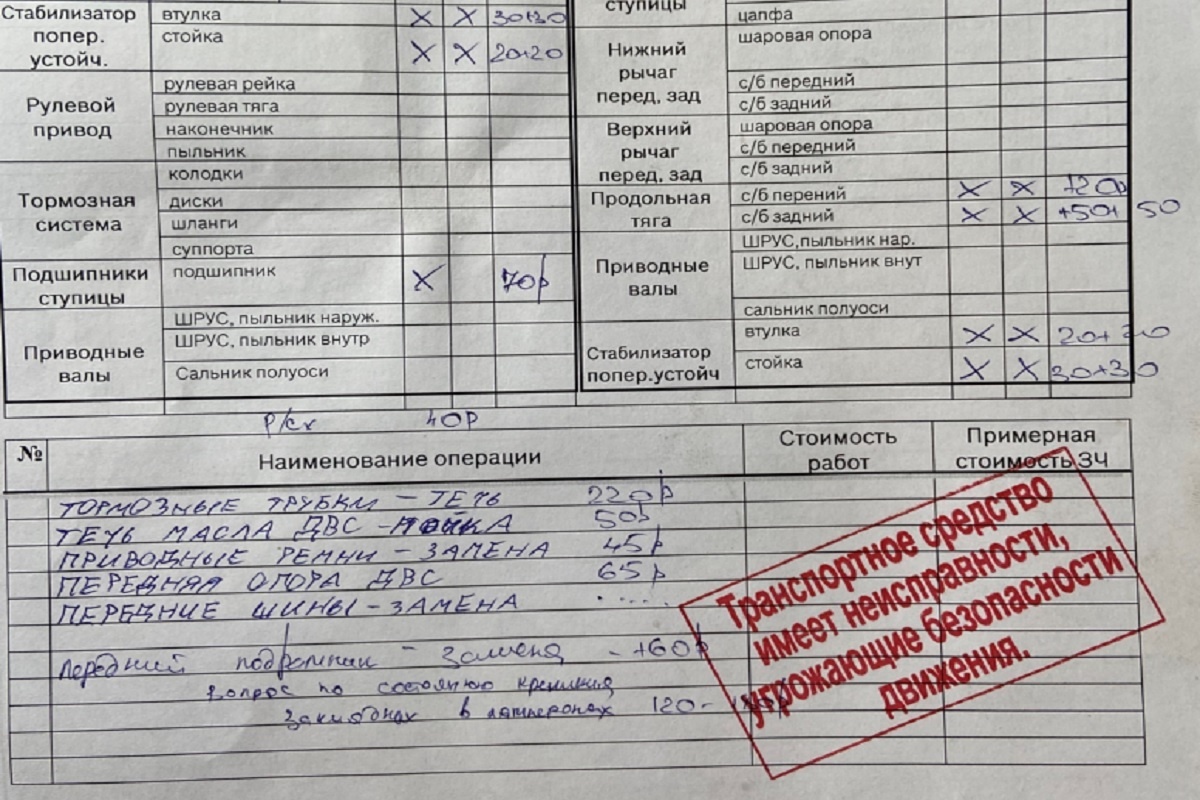 Стабилизатор попер. устойч.
втулка X X 30+30
стойка X X 20+20
Рулевой привод
рулевая рейка
рулевая тяга
наконечник
пыльник
Тормозная система
колодки
диски
шланги
суппорта
Подшипники ступицы
подшипник X 70р
Приводные валы
ШРУС, пыльник наруж.
ШРУС, пыльник внутр
Сальник полуоси
ступицы
цапфа
Нижний рычаг перед, зад
шаровая опора
с/б передний
с/б задний
Верхний рычаг перед, зад
шаровая опора
с/б передний
с/б задний
Продольная тяга
с/б перений X X
с/б задний X X +50+ 50
Приводные валы
ШРУС,пыльник нар.
ШРУС, пыльник внут
сальник полуоси
Стабилизатор попер.устойч
втулка X X
стойка X X 30+30
р/сх 40р
№ Наименование операции Стоимость работ Примерная стоимость ЗЧ
ТОРМОЗНЫЕ ТРУБКИ - ТЕЧЬ 220р
ТЕЧЬ МАСЛА ДВС - МОЙКА 50р
ПРИВОДНЫЕ РЕМНИ - ЗАМЕНА 45р
ПЕРЕДНЯЯ ОПОРА ДВС 65р
ПЕРЕДНИЕ ШИНЫ - ЗАМЕНА .....
Передний подрамник - замена - +60р
вопрос по состоянию крепления
закладных в лонжеронах 120-
Транспортное средство
имеет неисправности,
угрожающие безопасности
движения.